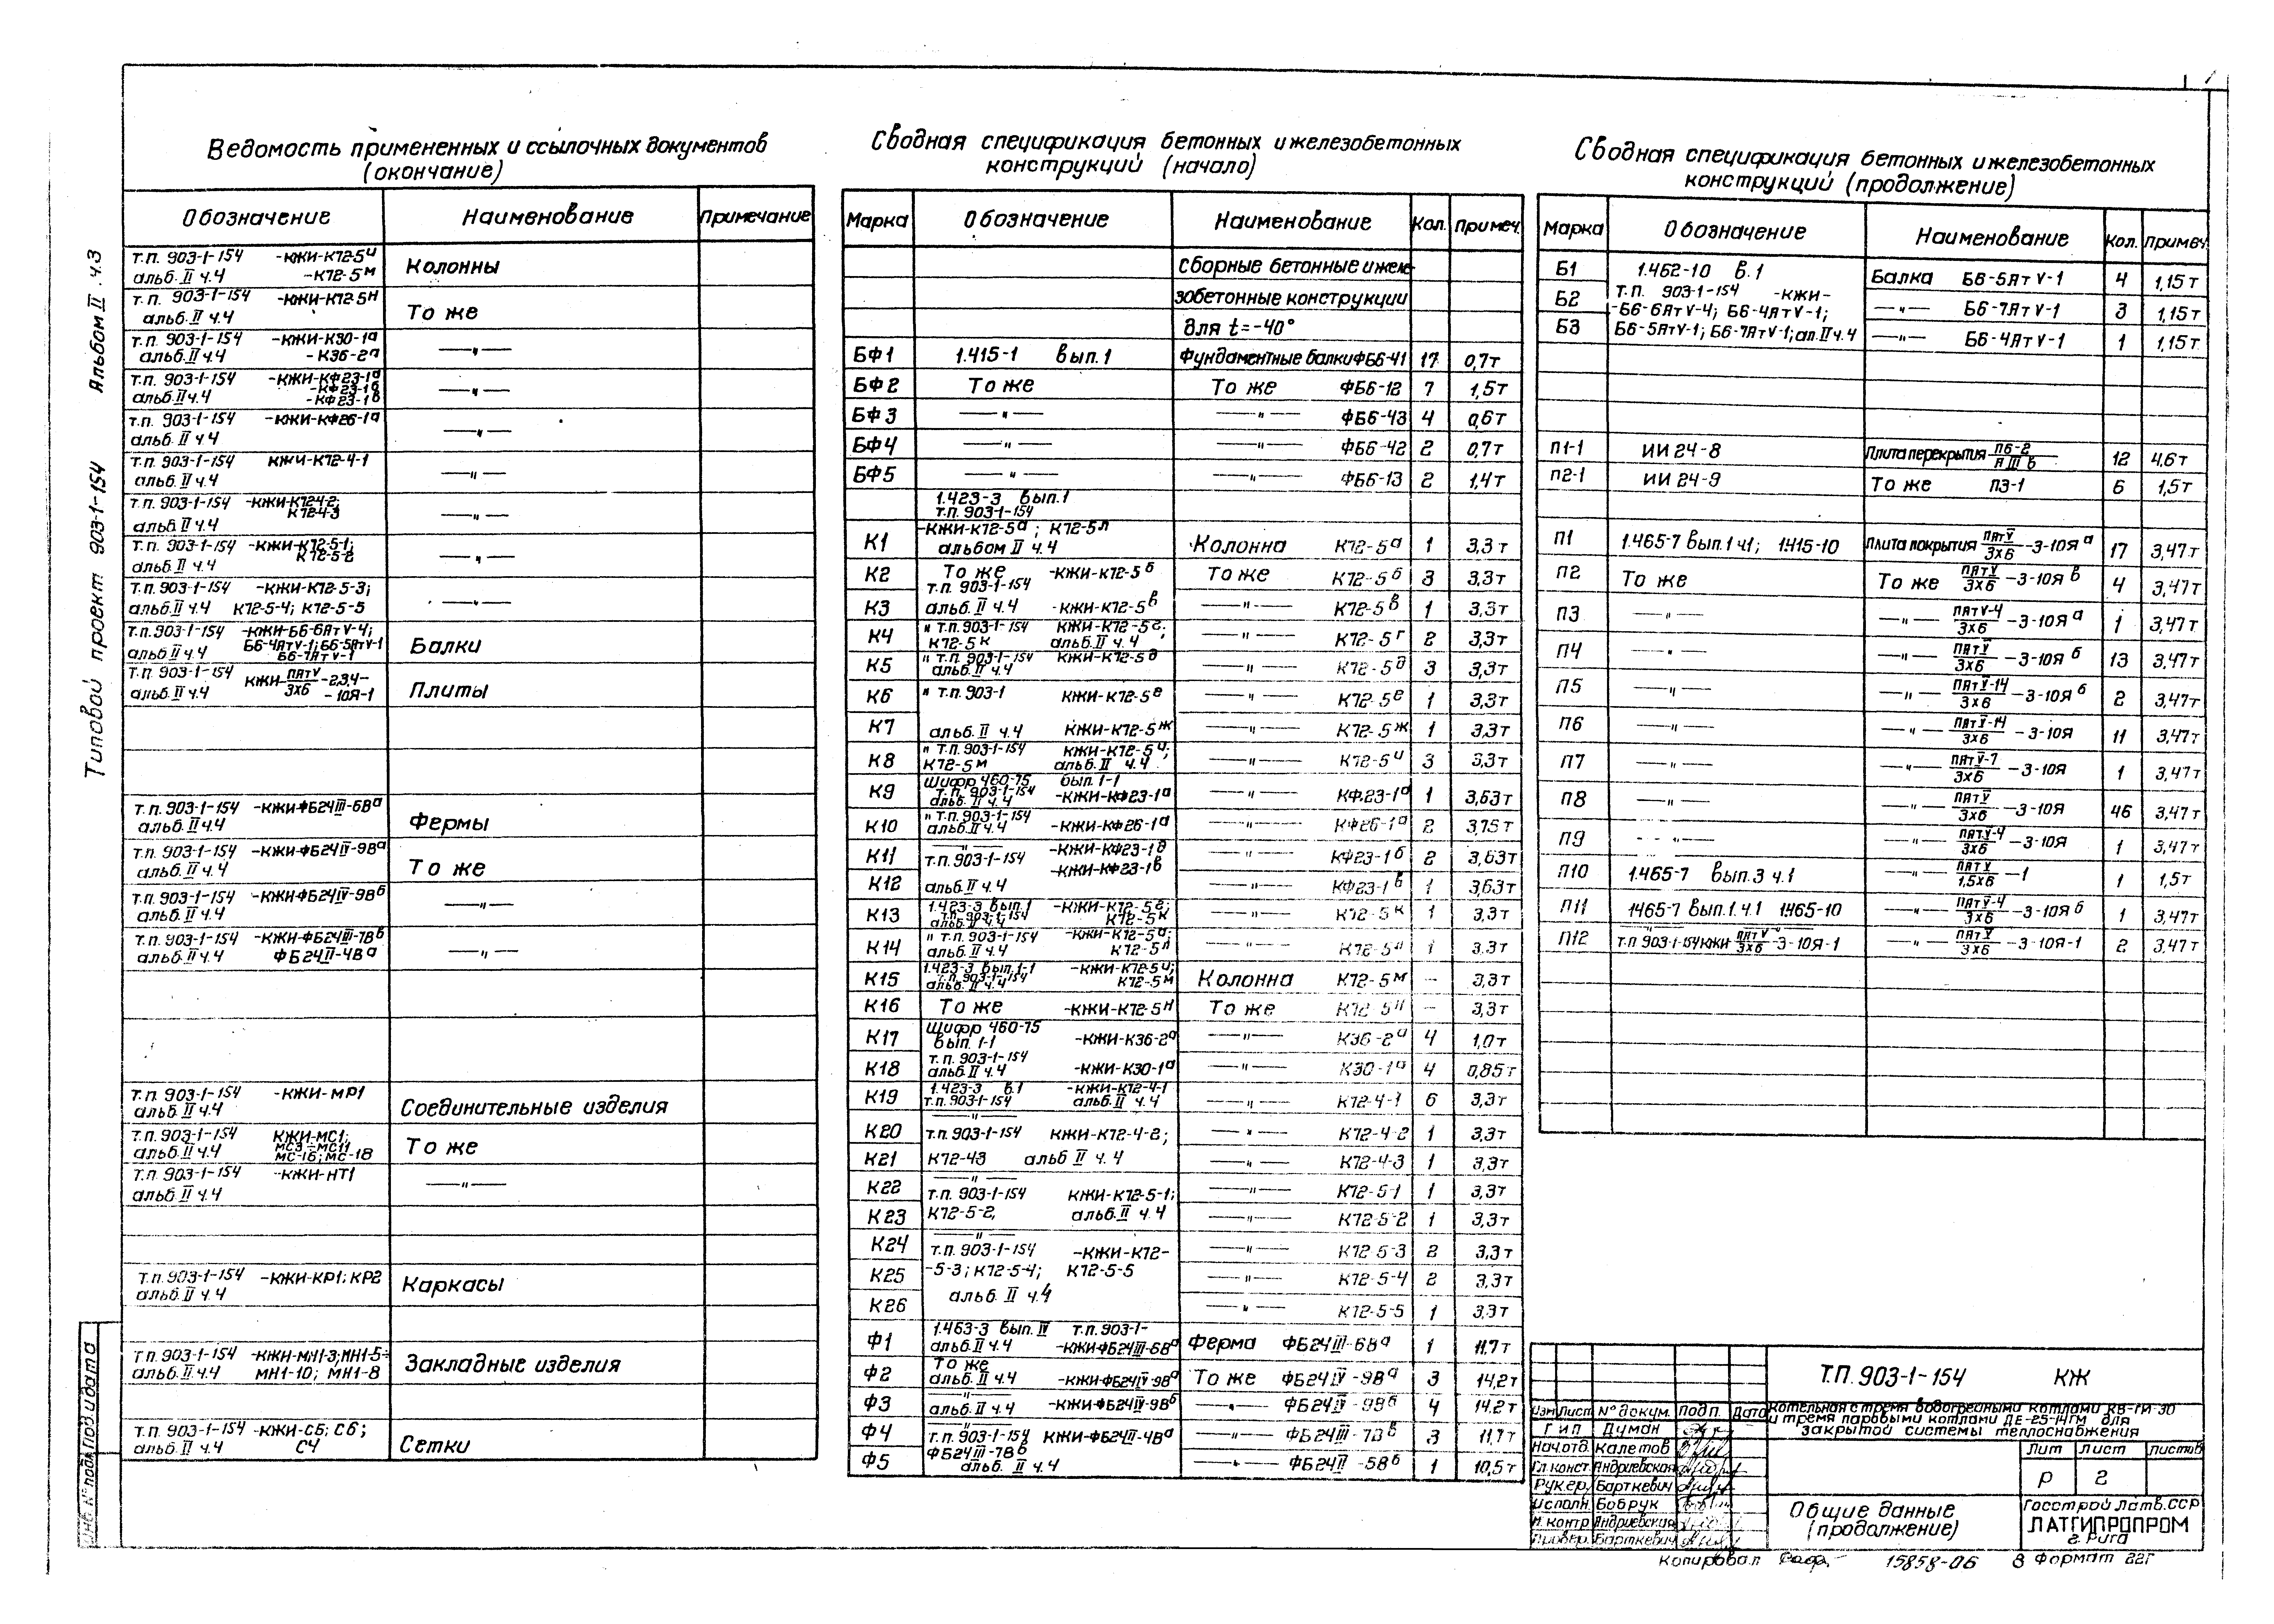 Типовой проект 903-1-154 Альбом II. ч.3
Ведомость примененных и ссылочных документов
(окончание)
Обозначение Наименование Примечание
т.п. 903-1-154 -КЖИ-К72-5и
альб. II ч.4 -К72-5м Колонны
т.п. 903-1-154 -КЖИ-К72-5н
альб. II ч.4 То же
т.п. 903-1-154 -КЖИ-К30-1а
альб. II ч.4 -К36-2а —"—
т.п. 903-1-154 -КЖИ-КФ23-1а
-КФ23-1б
альб. II ч.4 -КФ23-1в —"—
т.п. 903-1-154 -КЖИ-КФ26-1а
альб. II ч.4 —"—
т.п. 903-1-154 КЖИ-К72-4-1
альб. II ч.4 —"—
т.п. 903-1-154 -КЖИ-К72-4-2;
К72-4-3
альб. II ч.4 —"—
т.п. 903-1-154 -КЖИ-К72-5-1;
К72-5-2
альб. II ч.4 —"—
т.п. 903-1-154 -КЖИ-К72-5-3;
альб. II ч.4 К72-5-4; К72-5-5 —"—
т.п. 903-1-154 -КЖИ-Б6-6АтV-4;
Б6-4АтV-1; Б6-5АтV-1
альб. II ч.4 Б6-7АтV-1 Балки
т.п. 903-1-154 КЖИ-ПАтV/3х6-2,3,4-
альб. II ч.4 -10Я-1 Плиты
т.п. 903-1-154 -КЖИ-ФБ24III-6Ва
альб. II ч.4 Фермы
т.п. 903-1-154 -КЖИ-ФБ24IV-9Ва
альб. II ч.4 То же
т.п. 903-1-154 -КЖИ-ФБ24IV-9Вб
альб. II ч.4 —"—
т.п. 903-1-154 -КЖИ-ФБ24III-7Вб
альб. II ч.4 ФБ24II-4Ва —"—
т.п. 903-1-154 -КЖИ-МР1
альб. II ч.4 Соединительные изделия
т.п. 903-1-154 КЖИ-МС1;
МС3÷МС11
альб. II ч.4 МС-16; МС-18 То же
т.п. 903-1-154 -КЖИ-НТ1
альб. II ч.4 —"—
т.п. 903-1-154 -КЖИ-КР1; КР2
альб. II ч.4 Каркасы
т.п. 903-1-154 -КЖИ-МН1-3; МН1-5÷
альб. II ч.4 МН1-10; МН1-8 Закладные изделия
т.п. 903-1-154 -КЖИ-С5; С6;
альб. II ч.4 С4 Сетки
Сводная спецификация бетонных и железобетонных
конструкций (начало)
Марка Обозначение Наименование Кол. Примеч.
Сборные бетонные и желе-
зобетонные конструкции
для t=-40°
БФ1 1.415-1 вып.1 Фундаментные балки ФБ6-41 17 0,7т
БФ2 То же То же ФБ6-12 7 1,5т
БФ3 —"— —"— ФБ6-43 4 0,6т
БФ4 —"— —"— ФБ6-42 2 0,7т
БФ5 —"— —"— ФБ6-13 2 1,4т
1.423-3 вып.1
т.п. 903-1-154
-КЖИ-К72-5а; К72-5л
К1 альбом II ч.4 Колонна К72-5а 1 3,3т
К2 То же -КЖИ-К72-5б То же К72-5б 3 3,3т
т.п. 903-1-154
К3 альб. II ч.4 -КЖИ-К72-5в —"— К72-5в 1 3,3т
К4 " т.п. 903-1-154 КЖИ-К72-5г; К72-5к альб. II ч.4 —"— К72-5г 2 3,3т
К5 " т.п. 903-1-154 КЖИ-К72-5д альб. II ч.4 —"— К72-5д 3 3,3т
К6 " т.п. 903-1 КЖИ-К72-5е —"— К72-5е 1 3,3т
К7 альб. II ч.4 КЖИ-К72-5ж —"— К72-5ж 1 3,3т
К8 " т.п. 903-1-154 КЖИ-К72-5и; К72-5м альб. II ч.4 —"— К72-5и 3 3,3т
К9 Шифр 460-75 вып. 1-1 т.п. 903-1-154 альб. II ч.4 -КЖИ-КФ23-1а —"— КФ23-1а 1 3,63т
К10 " т.п. 903-1-154 альб. II ч.4 -КЖИ-КФ26-1а —"— КФ26-1а 2 3,75т
К11 —"— т.п. 903-1-154 -КЖИ-КФ23-1б —"— КФ23-1б 2 3,63т
-КЖИ-КФ23-1в
К12 альб. II ч.4 —"— КФ23-1в 1 3,63т
К13 1.423-3 вып.1 т.п. 903-1-154 альб. II ч.4 -КЖИ-К72-5г; К72-5к —"— К72-5к 1 3,3т
К14 " т.п. 903-1-154 альб. II ч.4 -КЖИ-К72-5а; К72-5л —"— К72-5л 1 3,3т
К15 1.423-3 вып. 1-1 т.п. 903-1-154 альб. II ч.4 -КЖИ-К72-5и; К72-5м Колонна К72-5м — 3,3т
К16 То же -КЖИ-К72-5н То же К72-5н — 3,3т
К17 Шифр 460-75 вып. 1-1 -КЖИ-К36-2а —"— К36-2а 4 1,0т
К18 т.п. 903-1-154 альб. II ч.4 -КЖИ-К30-1а —"— К30-1а 4 0,85т
К19 1.423-3 в.1 -КЖИ-К72-4-1 т.п. 903-1-154 альб. II ч.4 —"— К72-4-1 6 3,3т
—"—
К20 т.п. 903-1-154 КЖИ-К72-4-2; —"— К72-4-2 1 3,3т
К21 К72-43 альб II ч.4 —"— К72-4-3 1 3,3т
—"—
К22 т.п. 903-1-154 КЖИ-К72-5-1; —"— К72-5-1 1 3,3т
К23 К72-5-2, альб. II ч.4 —"— К72-5-2 1 3,3т
—"—
К24 т.п. 903-1-154 -КЖИ-К72- —"— К72-5-3 2 3,3т
К25 -5-3; К72-5-4; К72-5-5 —"— К72-5-4 2 3,3т
К26 альб. II ч.4 —"— К72-5-5 1 3,3т
Ф1 1.463-3 вып. IV т.п. 903-1- альб. II ч.4 -КЖИ-ФБ24III-6Ва Ферма ФБ24III-6Ва 1 11,7т
Ф2 То же альб. II ч.4 -КЖИ-ФБ24IV-9Ва То же ФБ24IV-9Ва 3 14,2т
Ф3 —"— альб. II ч.4 -КЖИ-ФБ24IV-9Вб —"— ФБ24IV-9Вб 4 14,2т
—"—
Ф4 т.п. 903-1-154 КЖИ-ФБ24II-4Ва —"— ФБ24III-7Вв 3 11,7т
Ф5 ФБ24III-7Вб альб. II ч.4 —"— ФБ24II-5Вб 1 10,5т
Сводная спецификация бетонных и железобетонных
конструкций (продолжение)
Марка Обозначение Наименование Кол. Примеч
Б1 1.462-10 в.1 Балка Б6-5АтV-1 4 1,15т
т.п. 903-1-154 -КЖИ-
Б2 -Б6-6АтV-4; Б6-4АтV-1; —"— Б6-7АтV-1 3 1,15т
Б3 Б6-5АтV-1; Б6-7АтV-1; ал. II ч.4 —"— Б6-4АтV-1 1 1,15т
П1-1 ИИ 24-8 Плита перекрытия П6-2/АIIIв 12 4,6т
П2-1 ИИ 24-9 То же П3-1 6 1,5т
П1 1.465-7 вып.1 ч.1; 1.415-10 Плита покрытия ПАтV/3х6-3-10Яа 17 3,47т
П2 То же То же ПАтV/3х6-3-10Яв 4 3,47т
П3 —"— —"— ПАтV-4/3х6-3-10Яа 1 3,47т
П4 —"— —"— ПАтV/3х6-3-10Яб 13 3,47т
П5 —"— —"— ПАтV-14/3х6-3-10Яб 2 3,47т
П6 —"— —"— ПАтV-14/3х6-3-10Я 11 3,47т
П7 —"— —"— ПАтV-7/3х6-3-10Я 1 3,47т
П8 —"— —"— ПАтV/3х6-3-10Я 46 3,47т
П9 —"— —"— ПАтV-4/3х6-3-10Я 1 3,47т
П10 1.465-7 вып.3 ч.1 —"— ПАтV/1,5х6-1 1 1,5т
П11 1465-7 вып.1.ч.1 1465-10 —"— ПАтV-4/3х6-3-10Яб 1 3,47т
П12 т.п 903-1-154 КЖИ ПАтV/3х6-3-10Я-1 —"— ПАтV/3х6-3-10Я-1 2 3,47т
Т.П. 903-1-154 КЖ
Котельная с тремя водогрейными котлами КВ-ГМ-30
и тремя паровыми котлами ДЕ-25-14ГМ для
закрытой системы теплоснабжения
Изм Лист № докум. Подп. Дата
ГИП Думан
Нач.отд. Калетов
Гл.конст. Андриевская
Рук.гр. Барткевич
Исполн. Бобрук
Н.контр Андриевская
Провер. Барткевич
Лит Лист Листов
Р 2
Общие данные
(продолжение)
Госстрой Латв.ССР
ЛАТГИПРОПРОМ
г. Рига
Инв. № подл. Под. и дата
Копировал 15858-06 8 Формат 22Г